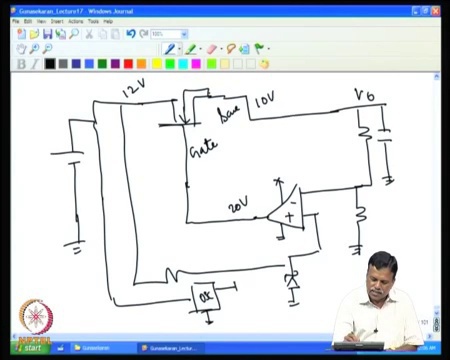 Gunasekaran_Lecture17 - Windows Journal
File Edit View Insert Actions Tools Help
12V
10V
V0
Gate
20V
-
+
OSC
start
Gunasekaran
Gunasekaran_Lectu...